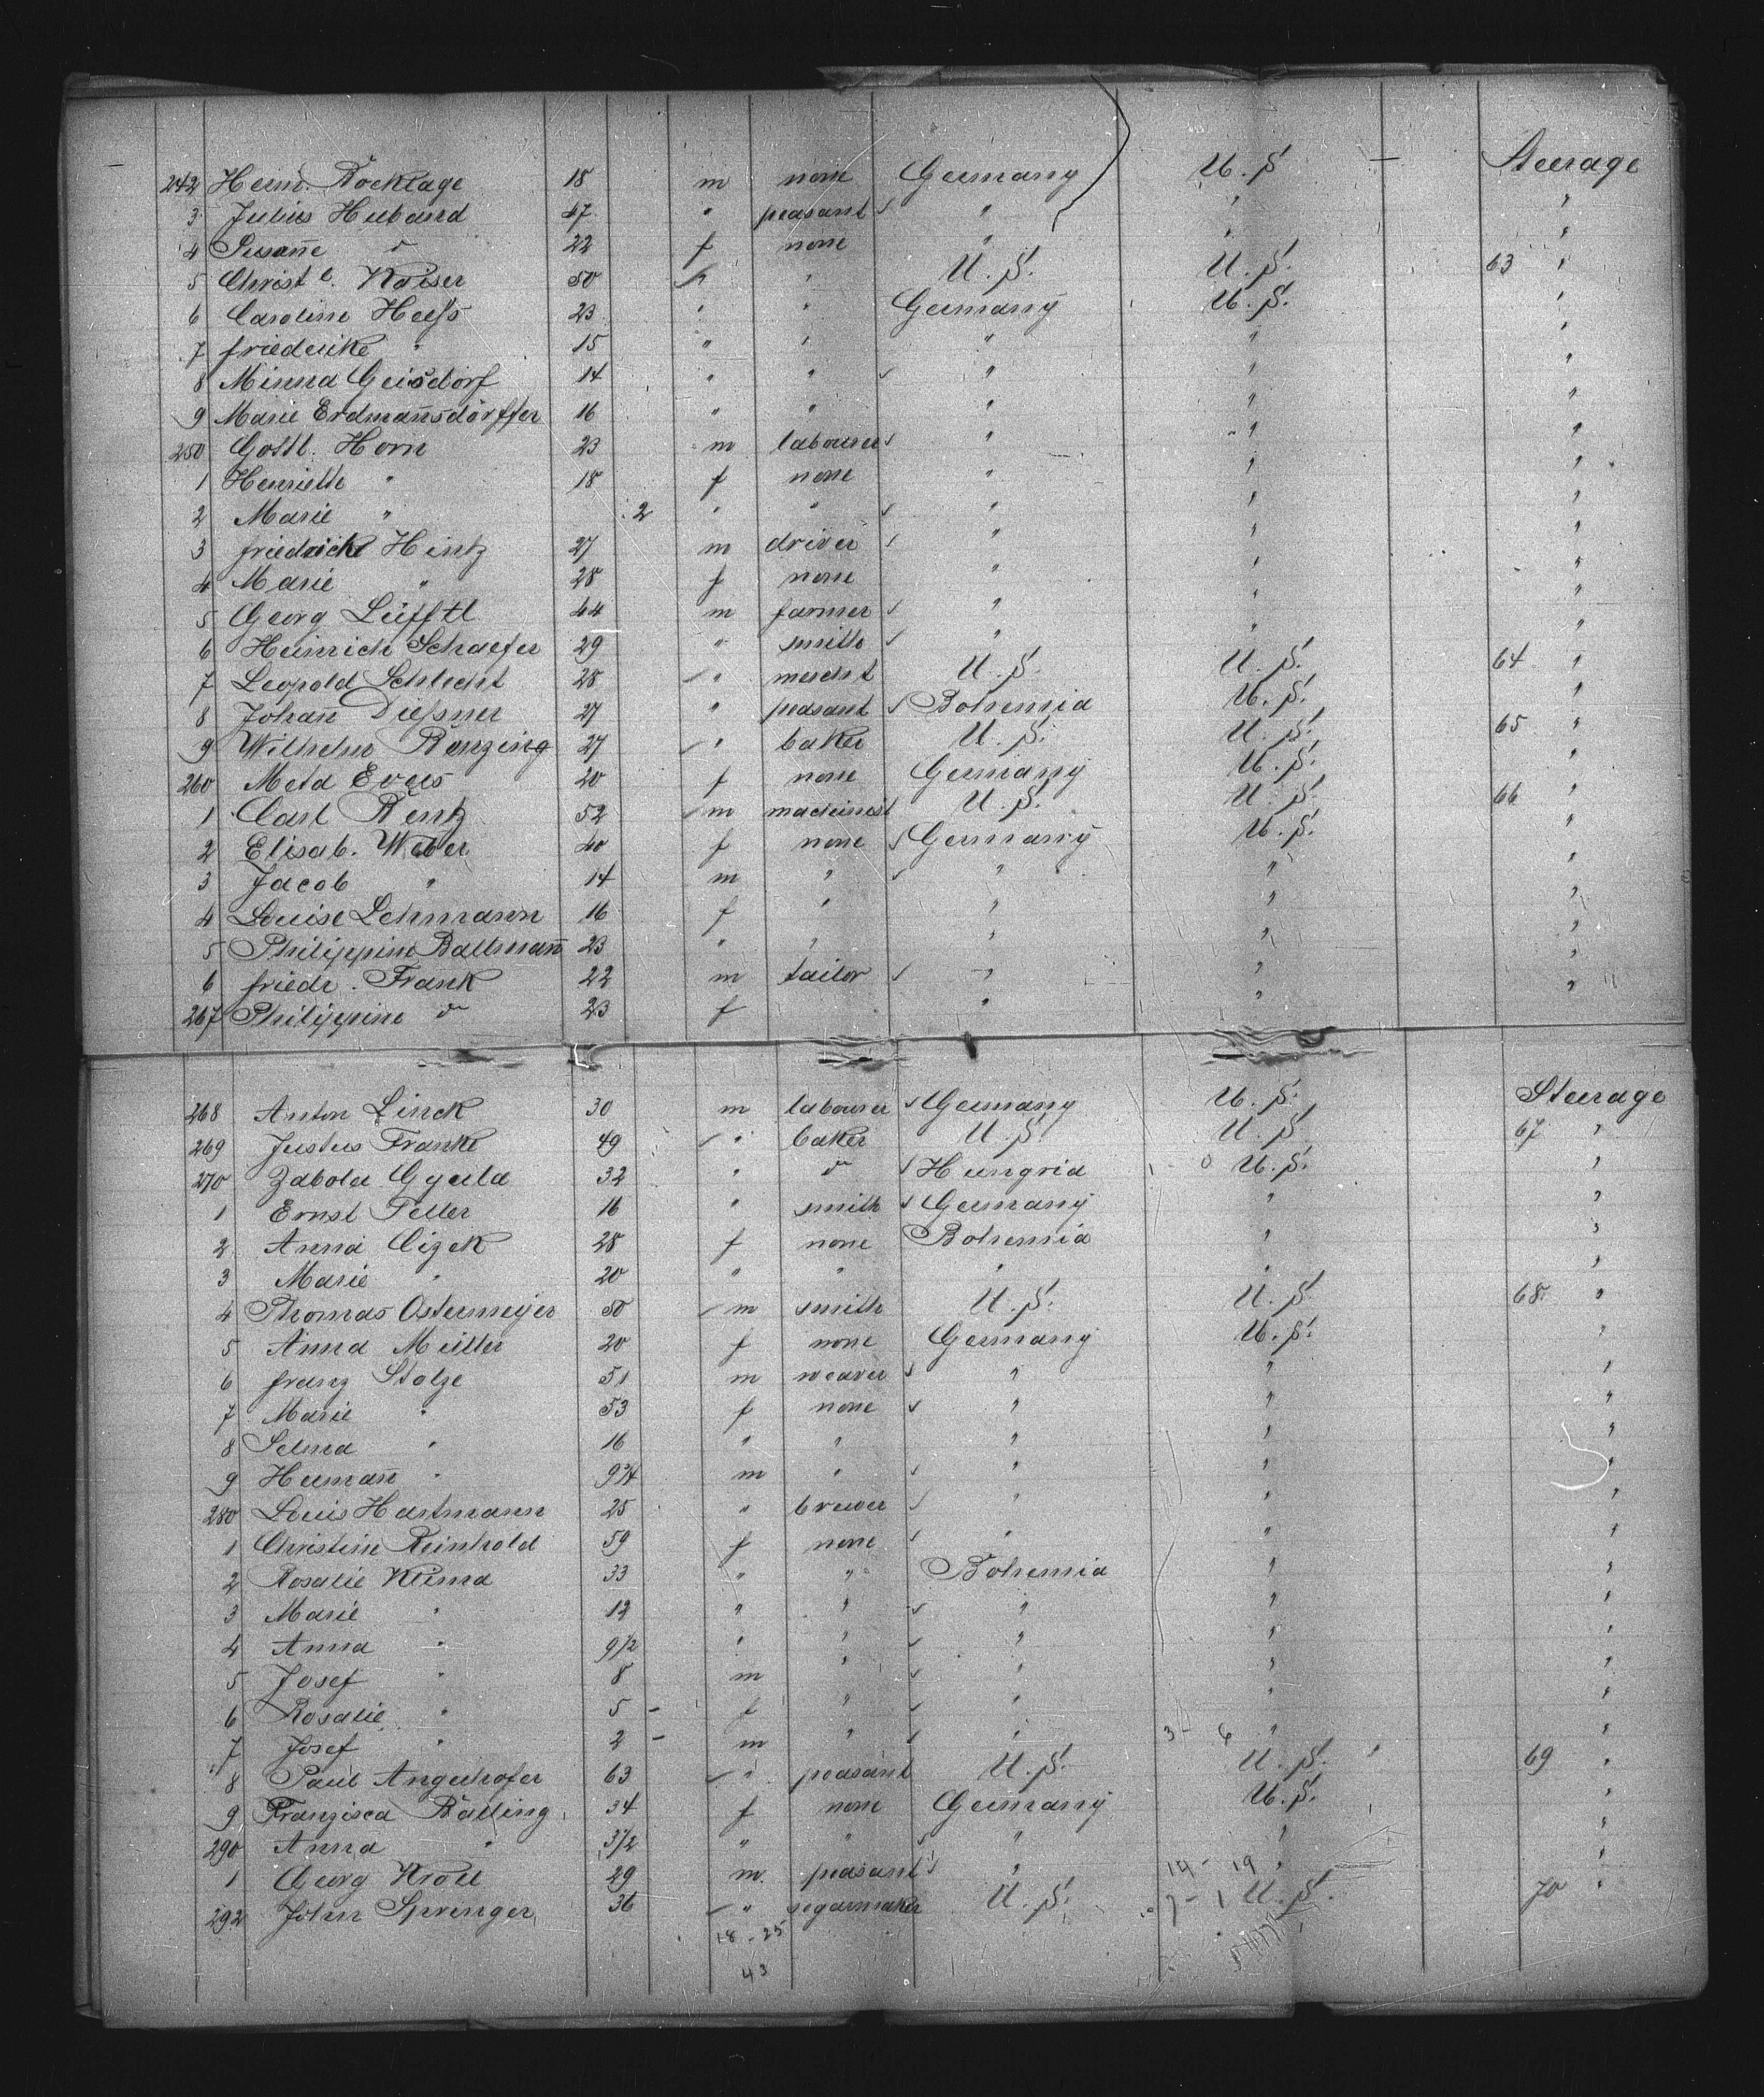 242 Herm. Bocklage 18 m none Germany U. S. Steerage
3 Julius Huband 47 " peasant " " "
4 Susane do 22 f none " " "
5 Christ l. Kaiser 50 " " U. S. U. S. 63 "
6 Caroline Hess 23 " " Germany U. S. "
7 friederike " 15 " " " " "
8 Minna Geisdorf 14 " " " " "
9 Marie Erdmannsdörffer 16 " " " " "
250 Gottl. Horn 23 m labourer " " "
1 Henriette " 18 f none " " "
2 Marie " 2 " " " " "
3 friedrich Hintz 27 m driver " " "
4 Marie " 28 f none " " "
5 Georg Lüfftl 44 m farmer " " "
6 Heinrich Schaefer 29 " smith " " "
7 Leopold Schlecht 28 " mercht U. S. U. S. 64 "
8 Johan Dressner 27 " peasant Bohemia U. S. "
9 Wilhelm Ranzing 27 " baker U. S. U. S. 65 "
260 Meta Evers 20 f none Germany U. S. "
1 Carl Rentz 52 m machinist U. S. U. S. 66 "
2 Elisab. Weber 40 f none Germany U. S. "
3 Jacob " 14 m " " " "
4 Louise Lehmann 16 f " " " "
5 Philippine Ballmann 23 " " " " "
6 friedr. Frank 22 m tailor " " "
267 Philippine do 23 f " " "
268 Anton Linck 30 m labourer Germany U. S. Steerage
269 Justus Franke 49 " baker U. S. U. S. 67 "
270 Zabola Gyula 32 " do Hungria U. S. "
1 Ernst Feller 16 " smith Germany " "
2 Anna Cizek 28 f none Bohemia " "
3 Marie " 20 " " " " "
4 Thomas Ostermeyer 50 m smith U. S. U. S. 68. "
5 Anna Müller 20 f none Germany U. S. "
6 franz Stolze 51 m weaver " " "
7 Marie " 53 f none " " "
8 Selma " 16 " " " " "
9 Hermann " 9 3/4 m " " " "
280 Louis Hartmann 25 " brewer " " "
1 Christine Reinhold 59 f none " " "
2 Rosalie Klima 33 " " Bohemia " "
3 Marie " 12 " " " " "
4 Anna " 9 1/2 " " " " "
5 Josef " 8 m " " " "
6 Rosalie " 5 - f " " " "
7 Josef " 2 - m " " 3 - 6 " "
8 Paul Angerhofer 63 " peasant U. S. U. S. 69 "
9 Franzisca Balling 34 f none Germany U. S. "
290 Anna " 3 1/2 " " " " "
1 Georg Kroll 29 m peasant " 14 - 19 " "
292 John Sprenger 36 " segarmaker U. S. 7 - 1 U. S. 70 "
18 - 25
43